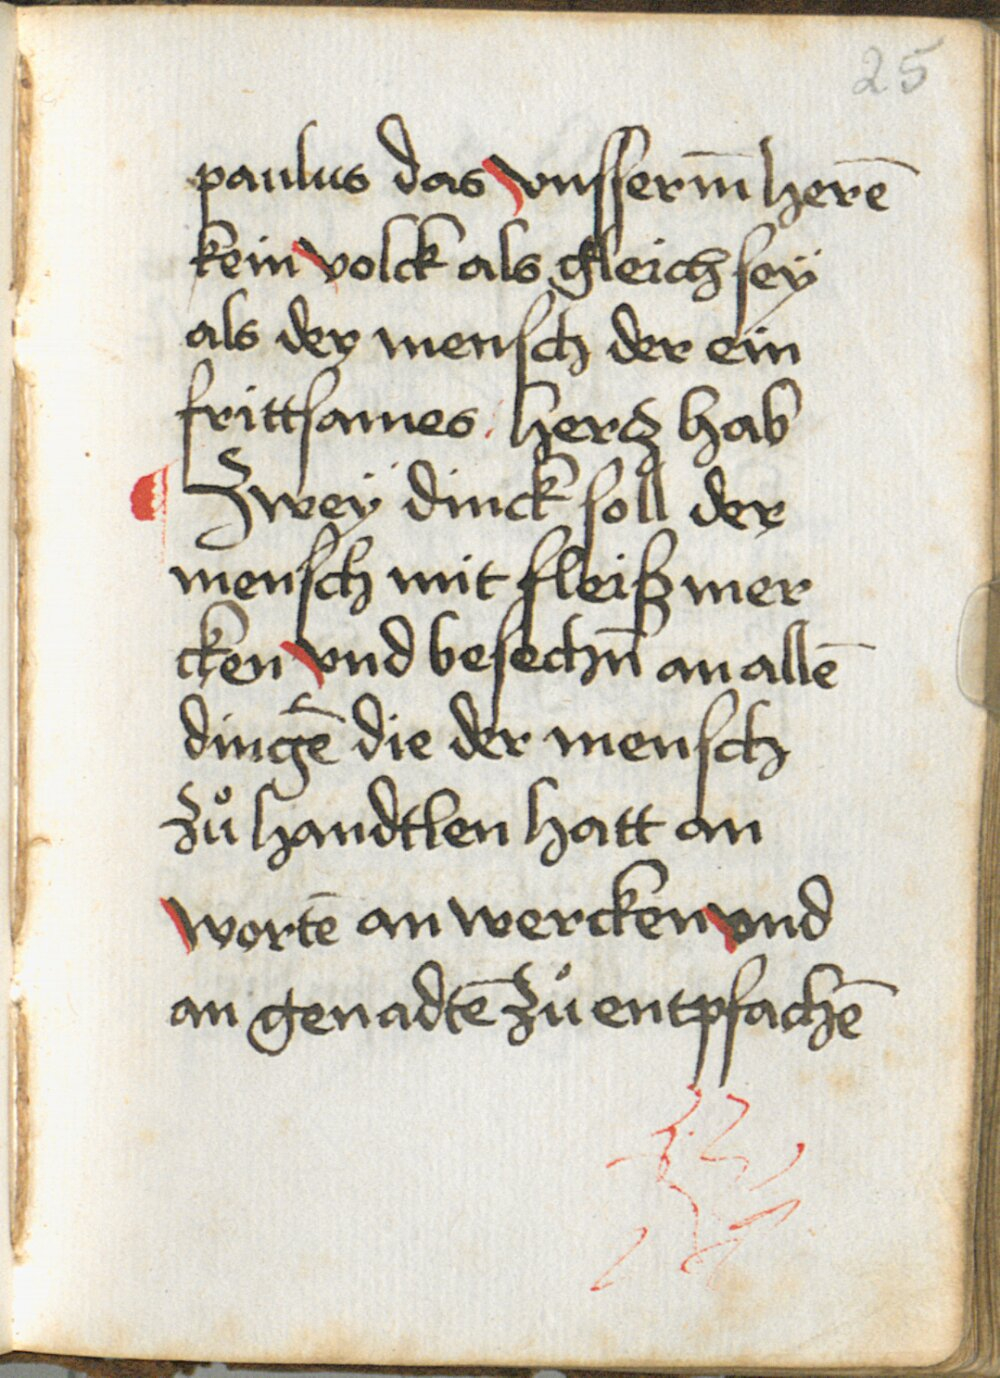 25
paulus das vnsserm̄ herē
kein volck als gleich seÿ
als der mensch der ein
frittsames herƺ hab
Zweÿ dinck soll der
mensch mit fleiß mer
cken vnd besechn̄ an allē
dingē die der mensch
zů handtlen hatt an
wortē an wercken vnd
an genadtē zů entpfachē